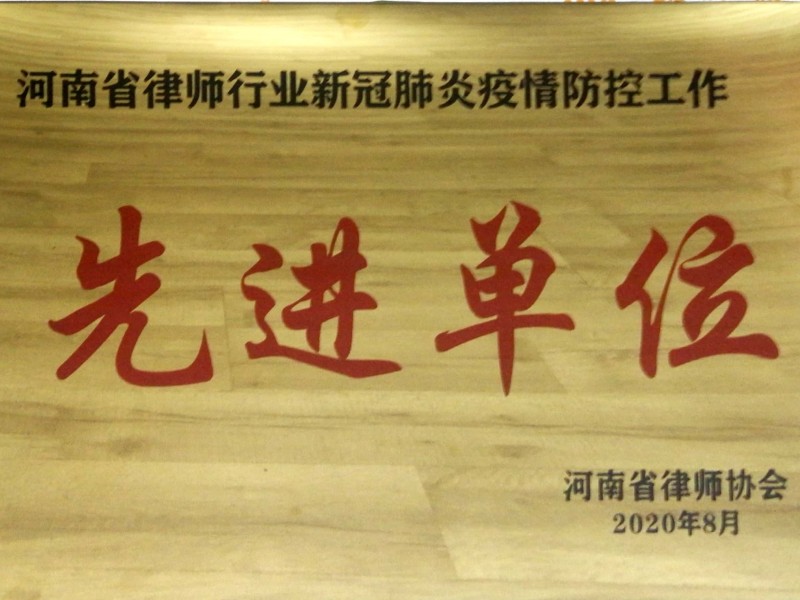 河南省律师行业新冠肺炎疫情防控工作
先进单位
河南省律师协会
2020年8月